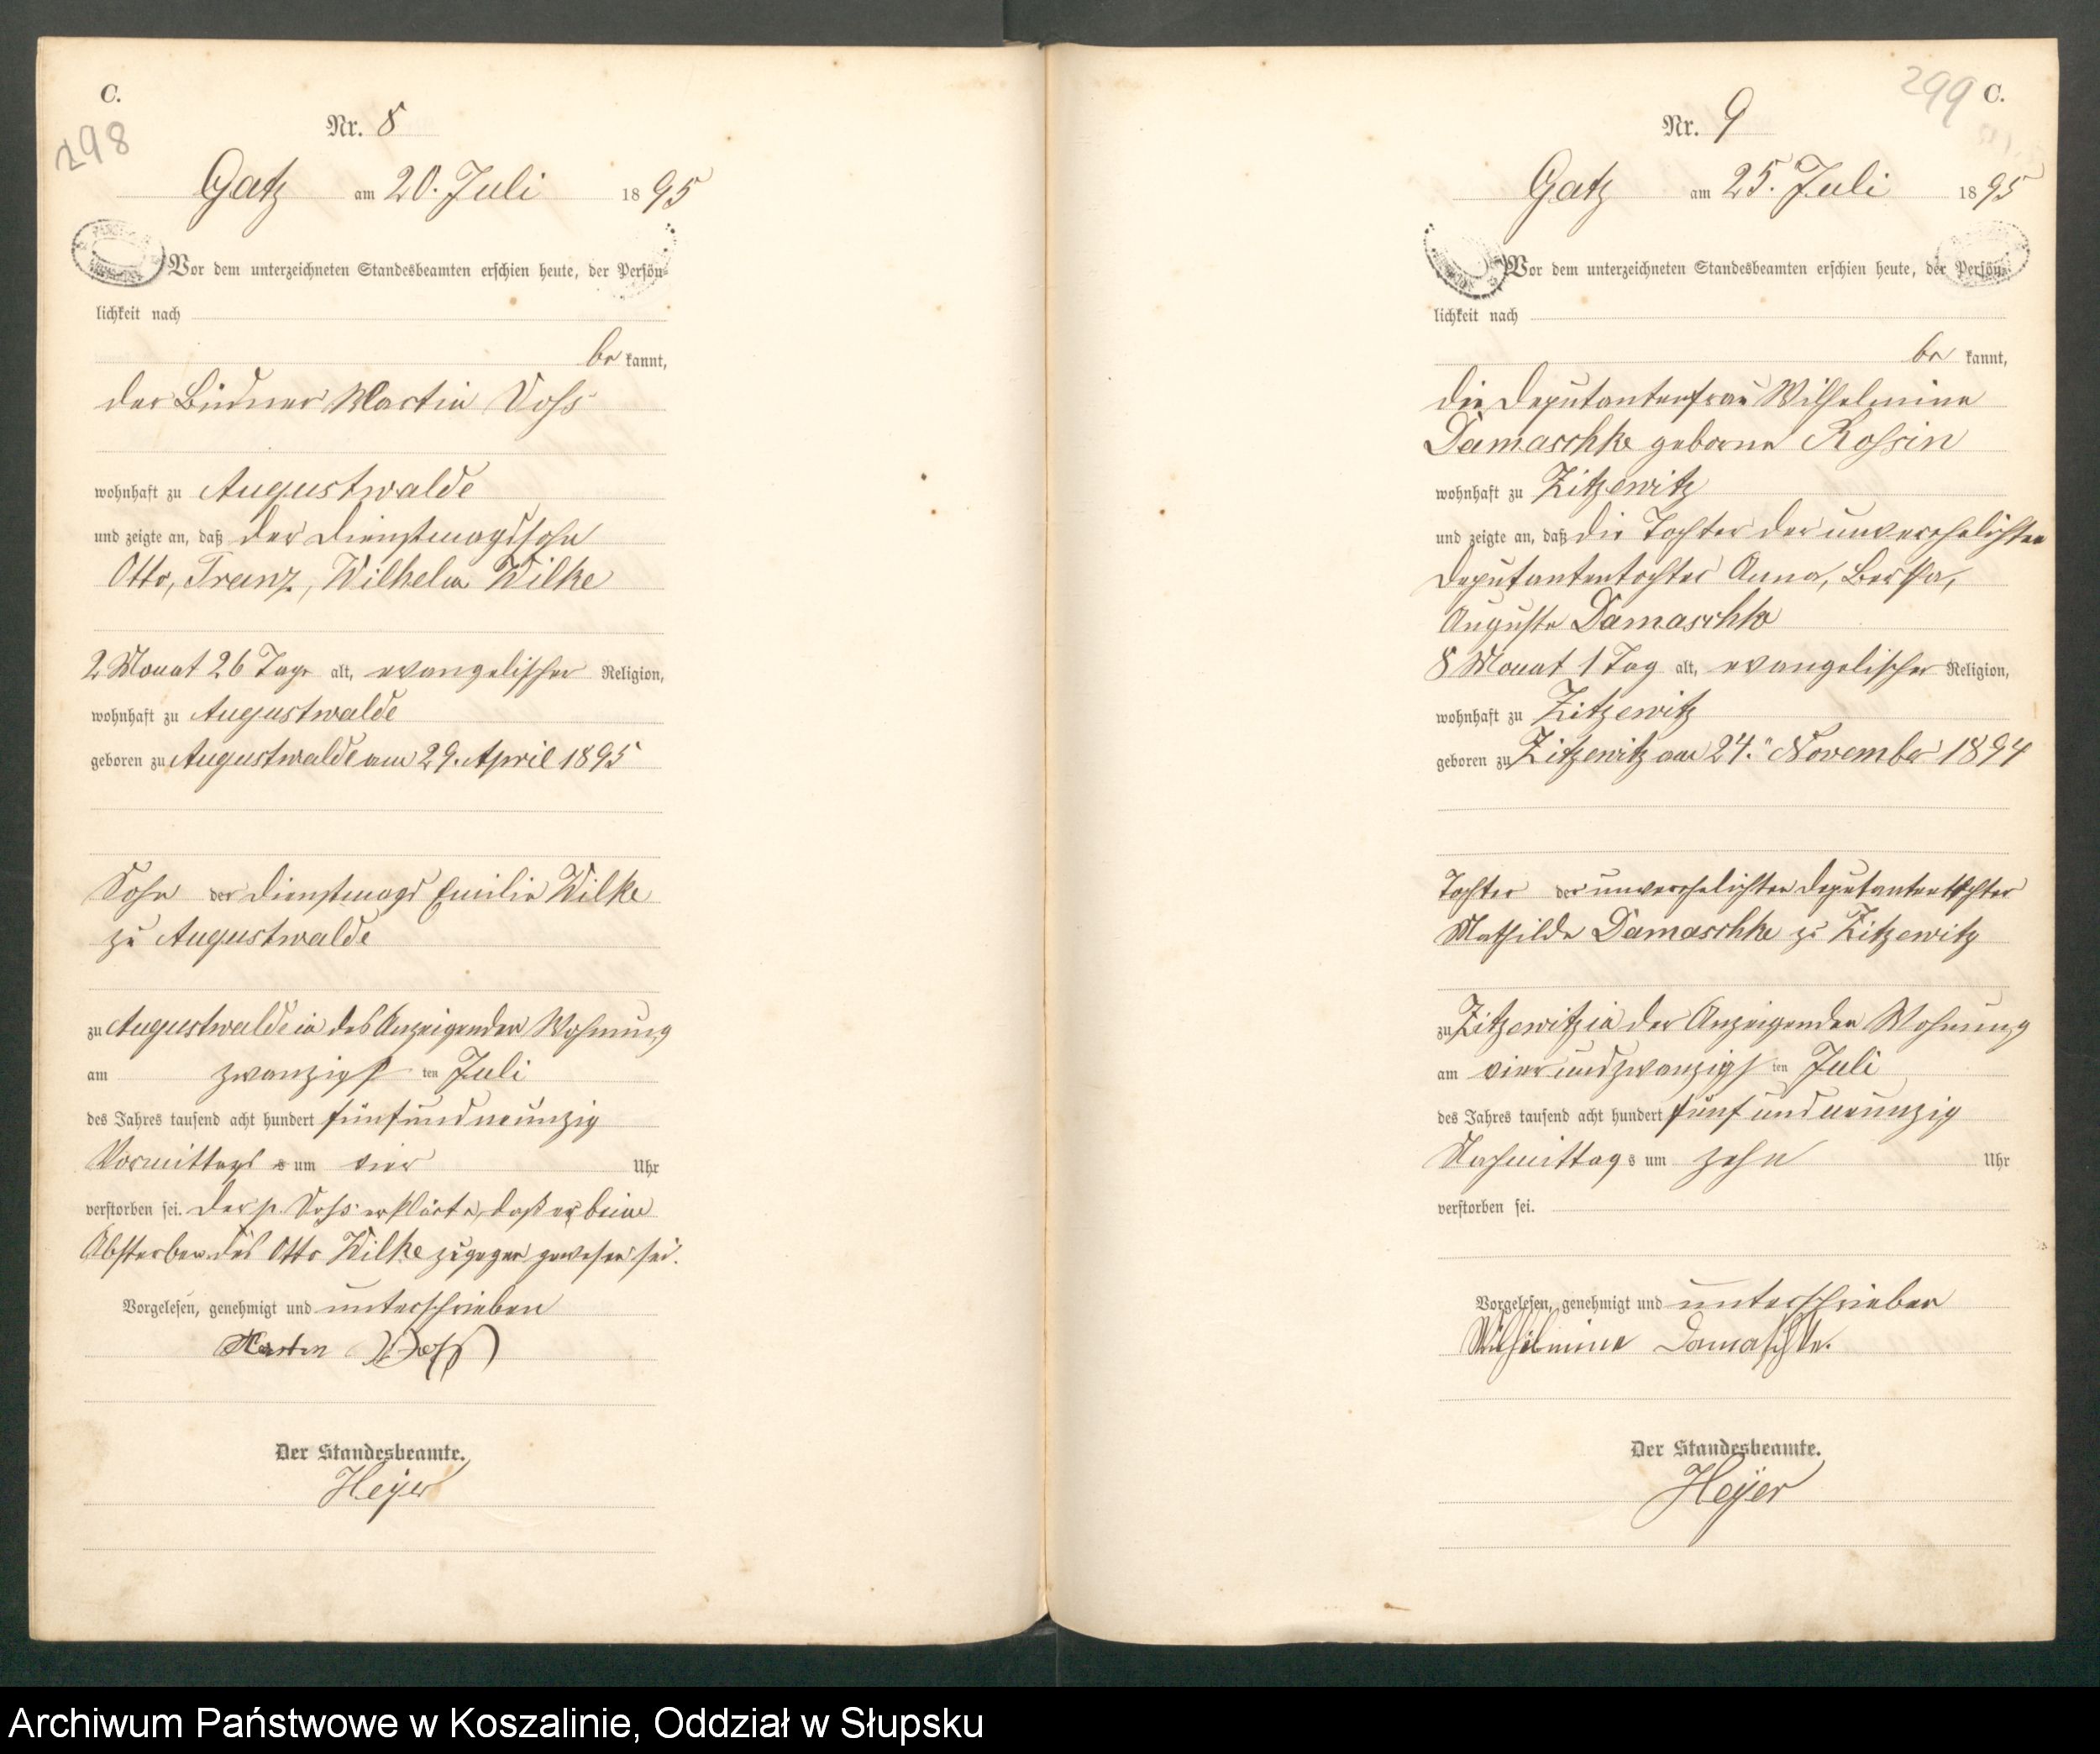 C.
298
Nr. 8
Gatz am 20. Juli 1895
Vor dem unterzeichneten Standesbeamten erschien heute, der Persön=
lichkeit nach
be kannt,
der Büdner Martin Voss
wohnhaft zu Augustwalde
und zeigte an, daß der Dienstmagdsohn
Otto, Franz, Wilhelm Wilke
2 Monat 26 Tage alt, evangelischer Religion,
wohnhaft zu Augustwalde
geboren zu Augustwalde am 29. April 1895
Sohn der Dienstmagd Emilie Wilke
zu Augustwalde
zu Augustwalde in des Anzeigenden Wohnung
am zwanzigsten Juli
des Jahres tausend acht hundert fünfundneunzig
Vormittags um vier Uhr
verstorben sei. Der p. Voss erklärte, daß er beim
Absterben des Otto Wilke zugegen gewesen sei.
Vorgelesen, genehmigt und unterschrieben
Marten Voß
Der Standesbeamte.
Heyer
299 C.
Nr. 9
Gatz am 25. Juli 1895
Vor dem unterzeichneten Standesbeamten erschien heute, der Persön=
lichkeit nach
be kannt,
die Deputantenfrau Wilhelmine
Damaschke geborne Rossin
wohnhaft zu Zitzewitz
und zeigte an, daß die Tochter der unverehelichten
Deputantentochter Anna, Bertha,
Auguste Damaschke
8 Monat 1 Tag alt, evangelischer Religion,
wohnhaft zu Zitzewitz
geboren zu Zitzewitz am 24. November 1894
Tochter der unverehelichten Deputantentochter
Mathilde Damaschke zu Zitzewitz
zu Zitzewitz in der Anzeigenden Wohnung
am vierundzwanzigsten Juli
des Jahres tausend acht hundert fünfundneunzig
Nachmittags um zehn Uhr
verstorben sei.
Vorgelesen, genehmigt und unterschrieben
Wilhelmine Damaschke.
Der Standesbeamte.
Heyer
Archiwum Państwowe w Koszalinie, Oddział w Słupsku